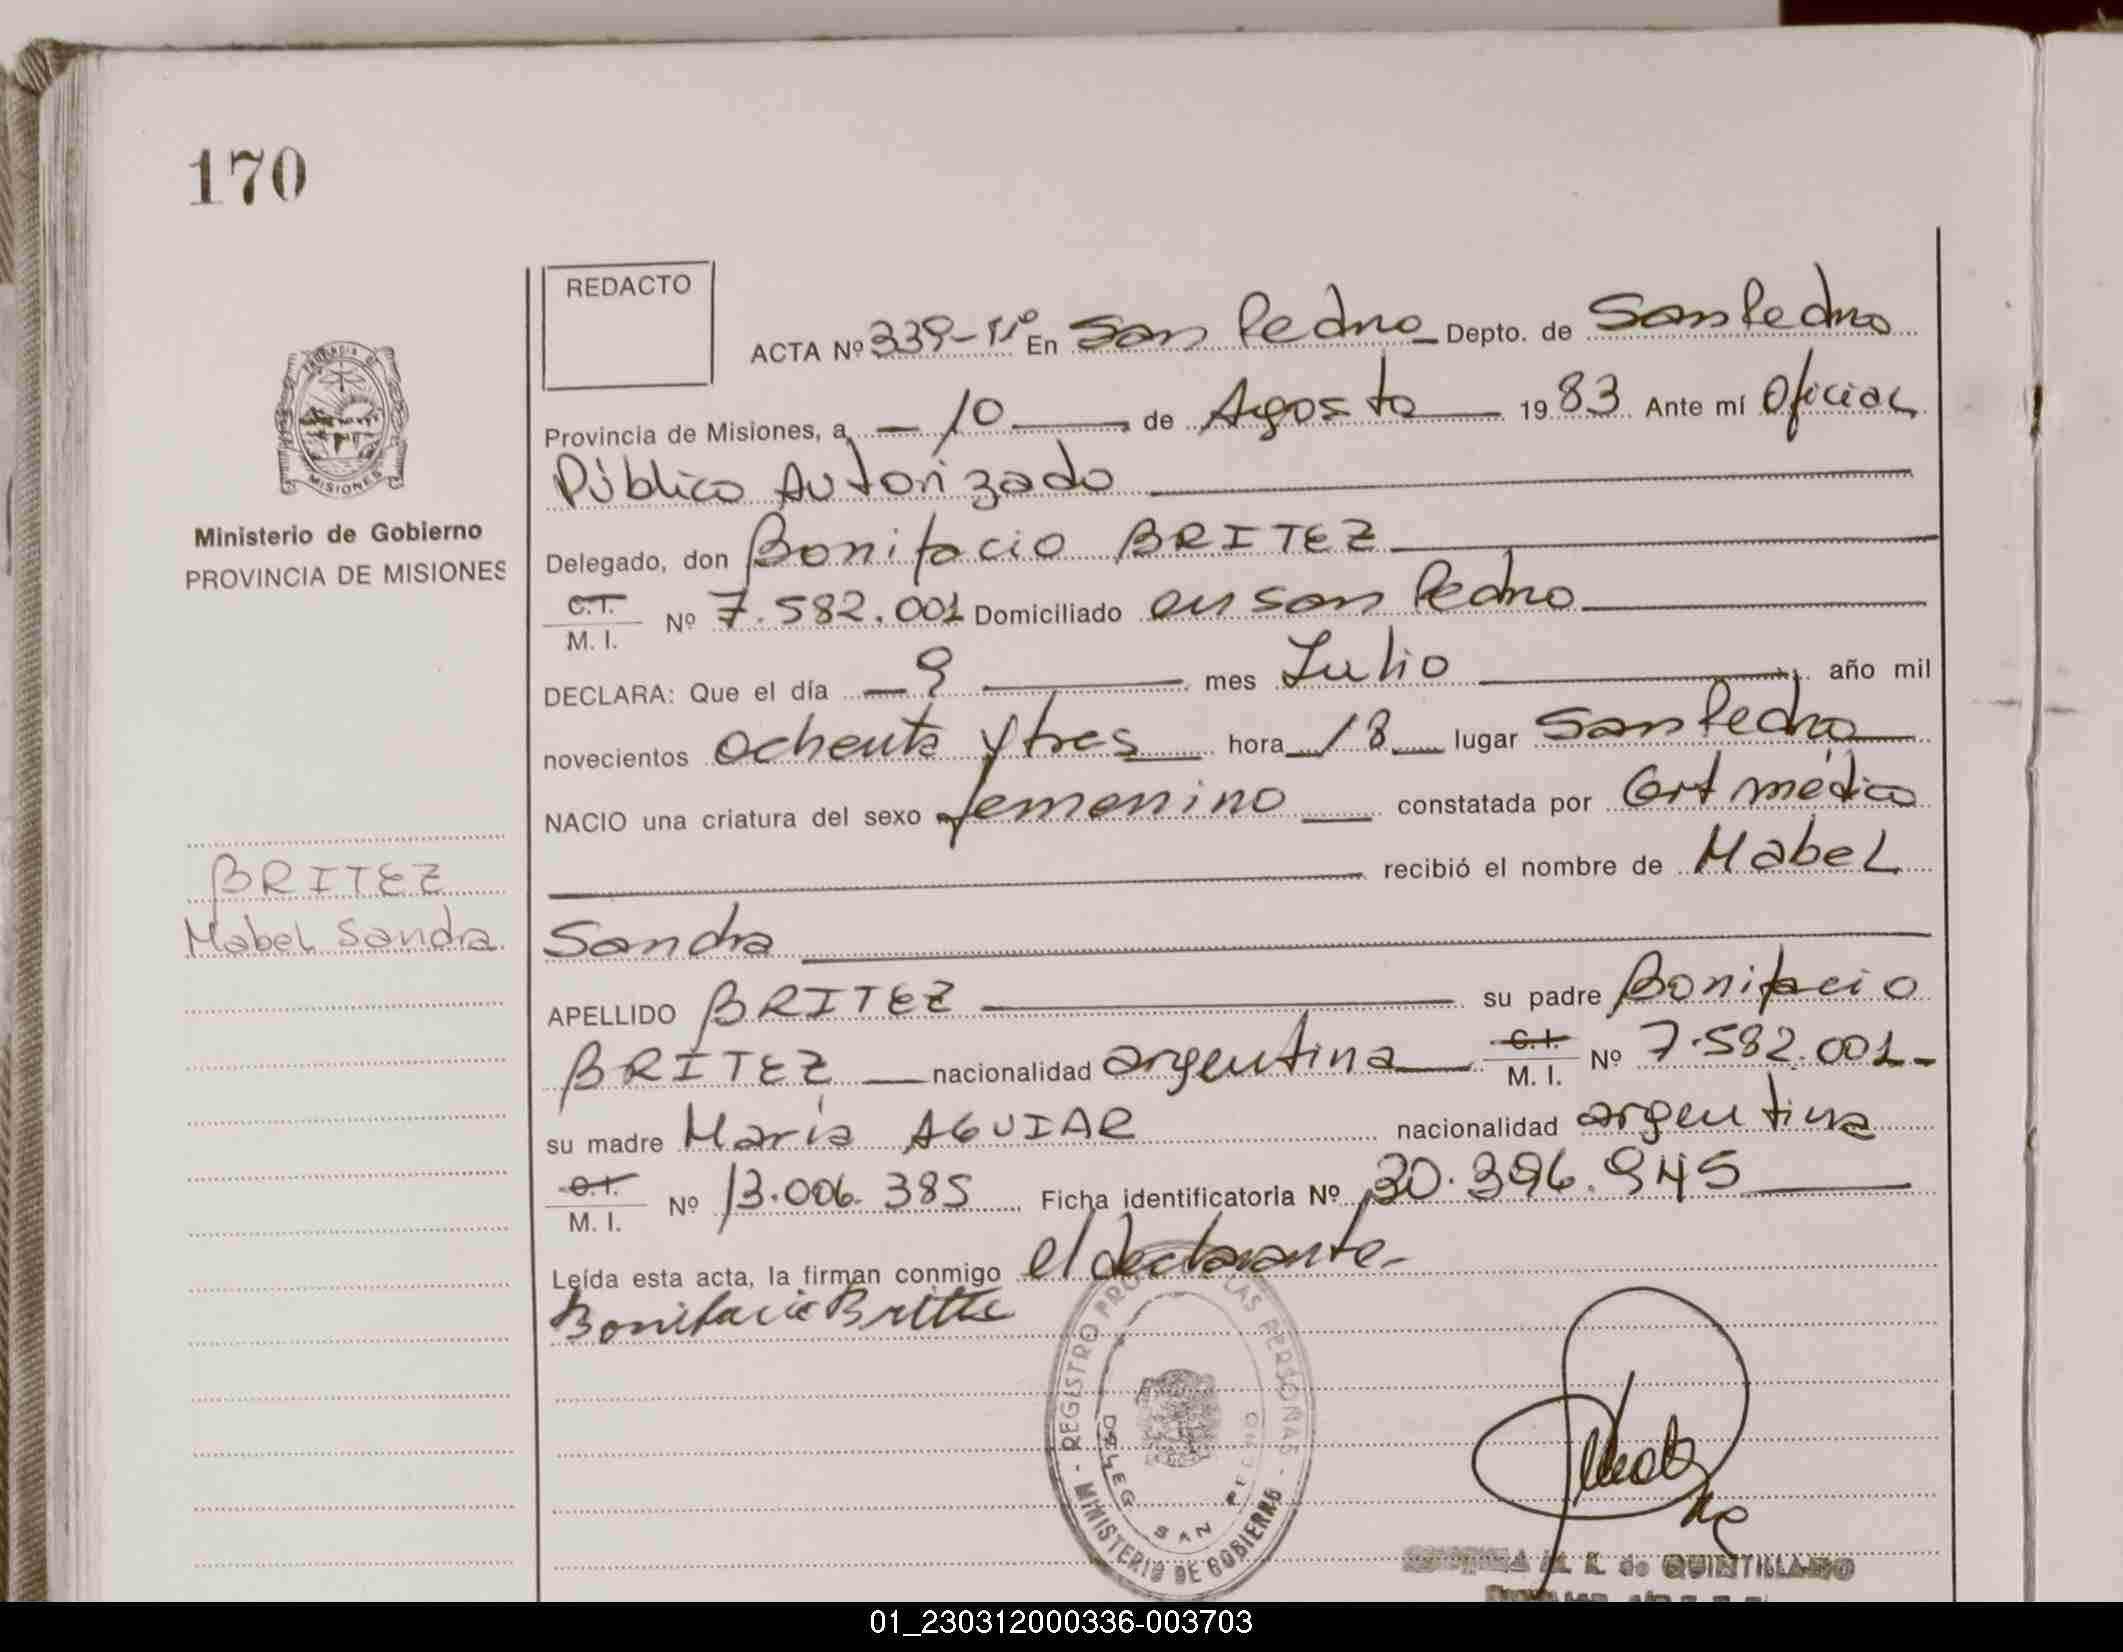 170
REDACTO
ACTA Nº 339-Tº En San Pedro Depto. de San Pedro
Provincia de Misiones, a - 10 de Agosto 1983 Ante mí Oficial
Público Autorizado
Delegado, don Bonifacio BRITEZ
C.I. M. I. Nº 7.582.001 Domiciliado en San Pedro
DECLARA: Que el día 9 mes Julio año mil
novecientos ochenta y tres hora 18 lugar San Pedro
NACIO una criatura del sexo femenino constatada por Cert médico
recibió el nombre de Mabel
Sandra
APELLIDO BRITEZ su padre Bonifacio
BRITEZ nacionalidad argentina C.I. M. I. Nº 7.582.001-
su madre María AGUIAR nacionalidad argentina
C.I. M. I. Nº 13.006.385 Ficha identificatoria Nº 30.396.945
Leída esta acta, la firman conmigo el declarante-
Bonifacio Britte
PROVINCIA DE MISIONES
Ministerio de Gobierno
PROVINCIA DE MISIONES
BRITEZ
Mabel Sandra
REGISTRO PRO LAS PERSONAS
DELEG SAN PEDRO
- MINISTERIO DE GOBIERNO -
M. E. de QUINTILLANO
01_230312000336-003703